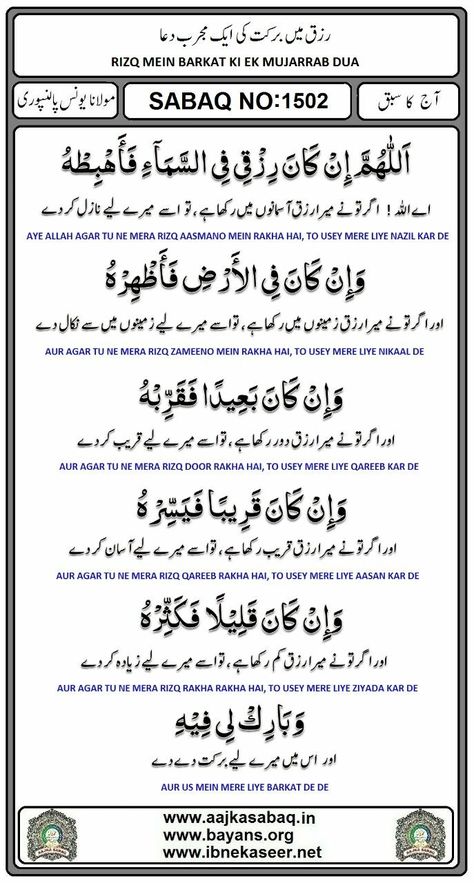 رزق میں برکت کی ایک مجرب دعا
RIZQ MEIN BARKAT KI EK MUJARRAB DUA
آج کا سبق
SABAQ NO:1502
مولانا یونس پالنپوری
اَللّٰهُمَّ إِنْ كَانَ رِزْقِي فِي السَّمَآءِ فَأَهْبِطْهُ
اے اللہ ! اگر تو نے میرا رزق آسمانوں میں رکھا ہے ، تو اسے میرے لیے نازل کر دے
AYE ALLAH AGAR TU NE MERA RIZQ AASMANO MEIN RAKHA HAI, TO USEY MERE LIYE NAZIL KAR DE
وَإِنْ كَانَ فِي الْأَرْضِ فَأَظْهِرْهُ
اور اگر تو نے میرا رزق زمینوں میں رکھا ہے ، تو اسے میرے لیے زمینوں میں سے نکال دے
AUR AGAR TU NE MERA RIZQ ZAMEENO MEIN RAKHA HAI, TO USEY MERE LIYE NIKAAL DE
وَإِنْ كَانَ بَعِيدًا فَقَرِّبْهُ
اور اگر تو نے میرا رزق دور رکھا ہے ، تو اسے میرے لیے قریب کر دے
AUR AGAR TU NE MERA RIZQ DOOR RAKHA HAI, TO USEY MERE LIYE QAREEB KAR DE
وَإِنْ كَانَ قَرِيبًا فَيَسِّرْهُ
اور اگر تو نے میرا رزق قریب رکھا ہے ، تو اسے میرے لیے آسان کر دے
AUR AGAR TU NE MERA RIZQ QAREEB RAKHA HAI, TO USEY MERE LIYE AASAN KAR DE
وَإِنْ كَانَ قَلِيْلًا فَكَثِّرْهُ
اور اگر تو نے میرا رزق کم رکھا ہے ، تو اسے میرے لیے زیادہ کر دے
AUR AGAR TU NE MERA RIZQ RAKHA RAKHA HAI, TO USEY MERE LIYE ZIYADA KAR DE
وَبَارِكْ لِي فِيْهِ
اور اس میں میرے لیے برکت دے دے
AUR US MEIN MERE LIYE BARKAT DE DE
www.aajkasabaq.in
www.bayans.org
www.ibnekaseer.net
AAJKA SABAQ
AAJKA SABAQ